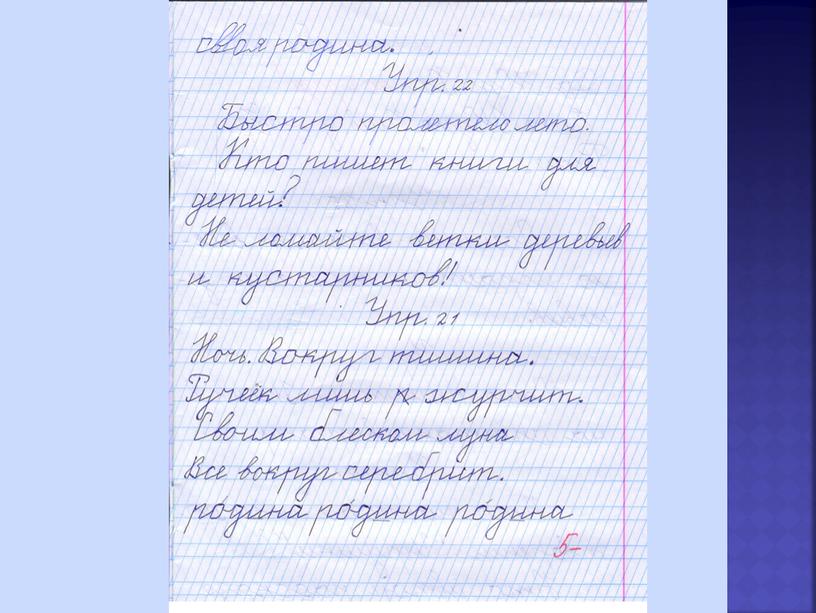 своя родина.
Упр. 22
Быстро пролетело лето.
Кто пишет книги для
детей?
Не ломайте ветки деревьев
и кустарников!
Упр. 21
Ночь. Вокруг тишина.
Ручеёк лишь журчит.
Своим блеском луна
Все вокруг серебрит.
ро́дина ро́дина ро́дина
5-